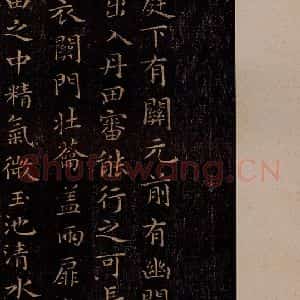 庭下有關元前有幽闕
出入丹田審能行之可長
衣關門壯籥蓋兩扉
田之中精氣微玉池清水
Shufawang.CN